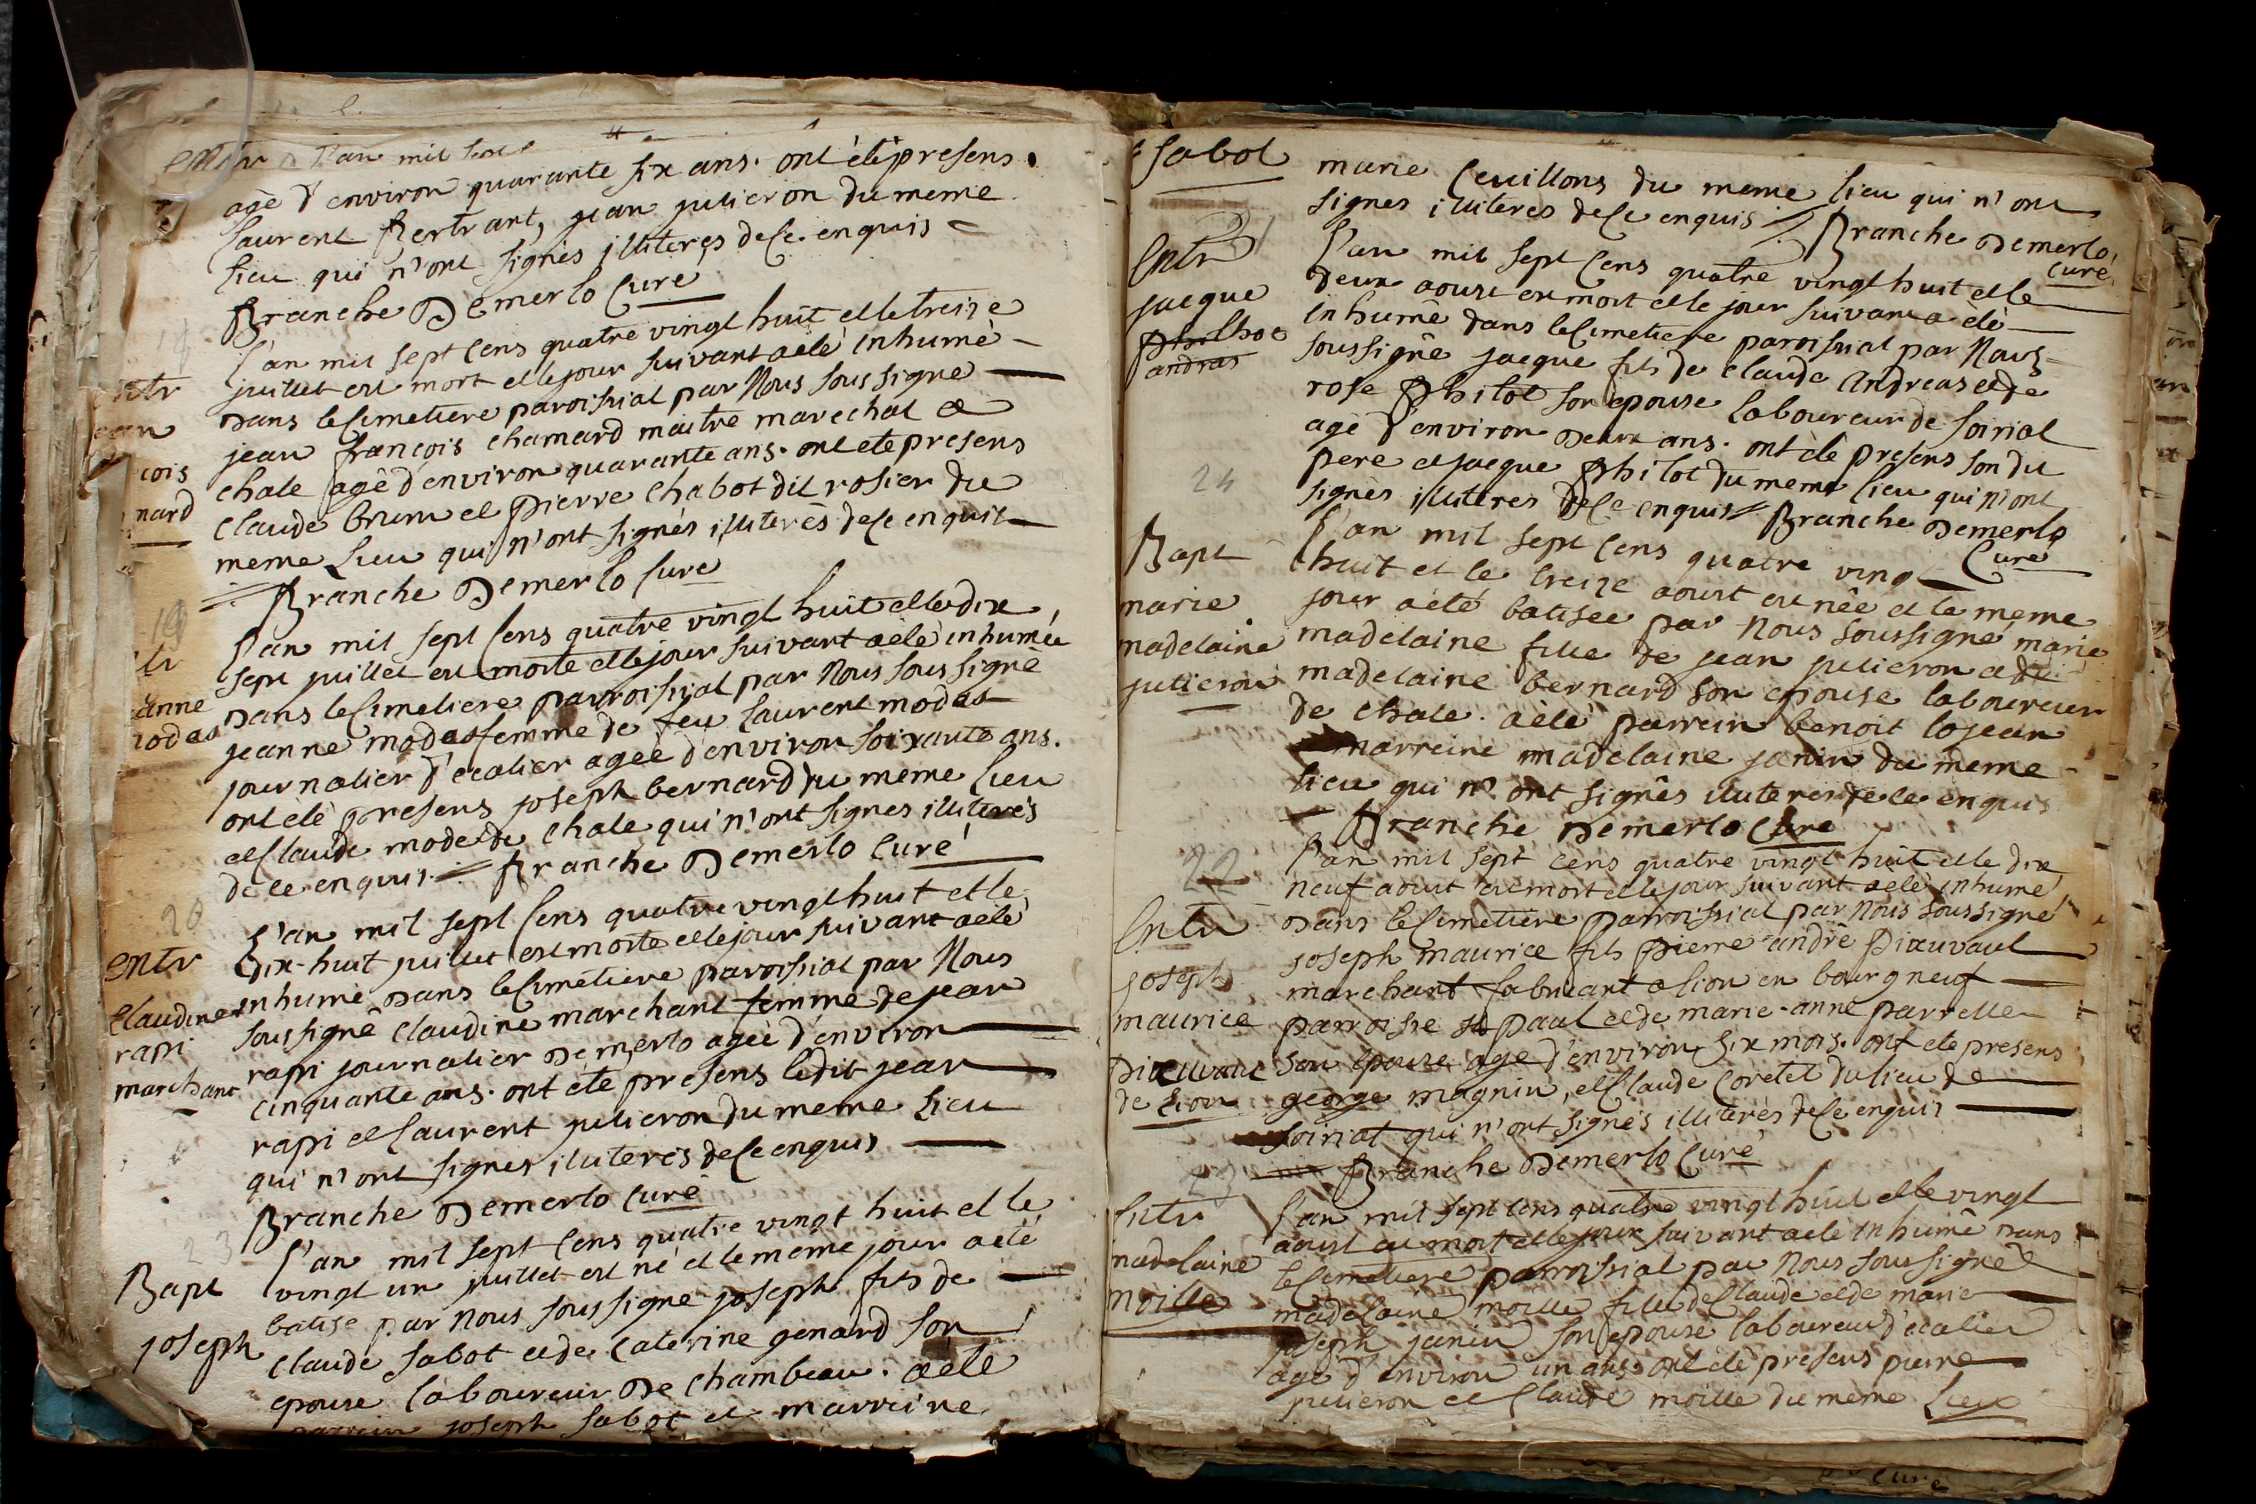 entr
agè d'environ quarante six ans. ont étè presens
laurent Bertrant, jean julieron du meme
lieu qui n'ont signès illiterès de ce enquis
Branche Demerlo Cure
18
entr
jean
cois
mard
L'an mil sept cens quatre vingt huit et le treize
juillet est mort et le jour suivant a etè inhumè
Dans le Cimetiere paroissial par Nous soussignè
jean françois chamard maitre marechal a
chale agè d'environ quarante ans. ont ete presens
Claude brun et pierre Chabot dit rosier du
meme lieu qui n'ont signès illiterès de ce enquis
Branche Demerlo Curè
19
tr
anne
modas
L'an mil sept cens quatre vingt huit et le dix
sept juillet est morte et le jour suivant a etè inhumée
Dans le Cimetiere parroissial par Nous soussignè
jeanne modas femme de feu laurent modas
journalier d'ecalier agee d'environ soixante ans.
ont etè presens joseph bernard du meme lieu
et Claude mode de chale qui n'ont signes illiterès
de ce enquis Branche Demerlo Curé
20
entr
Claudine
rapi
marchant
L'an mil sept cens quatre vingt huit et le
Dix-huit juillet est morte et le jour suivant a etè
inhumè Dans le Cimetiere paroissial par Nous
soussignè Claudine marchant femme de jean
rapi journalier Demerlo agee d'environ
cinquante ans. ont ete presens ledit jean
rapi et laurent julieron du meme lieu
qui n'ont signes illiterès de ce enquis
Branche Demerlo Curè
23
Bapt
joseph
L'an mil sept cens quatre vingt huit et le
vingt un juillet est né et le meme jour a eté
batise par Nous soussigne joseph fils de
Claude sabot et de Caterine genard son
epouse laboureur De chambeau. a etè
parrein joseph sabot et marreine
sabot
marie Cevillons du meme lieu qui n'ont
signes illiteres de ce enquis Branche Demerlo
Curè
21
Entr
jacque
andras
L'an mil sept cens quatre vingt huit et le
deux aoust est mort et le jour suivant a etè
inhumè dans le Cimetiere paroissial par Nous
soussignè jacque fils de Claude Andreas et de
rose philot son epouse laboureur de soirial
agè d'environ deux ans. ont ètè presens son dit
pere et jacque philot du meme lieu qui n'ont
signès illiteres de ce enquis Branche Demerlo
Curè
24
Bapt
marie
madelaine
julieron
L'an mil sept cens quatre vingt
huit et le treize aoust est nèe et le meme
jour a eté batisée par Nous soussignè marie
madelaine fille de jean julieron et de
madelaine bernard son epouse laboureur
de chale. a etè parrein benoit lojean
marreine madelaine janin du meme
lieu qui n'ont signès illiteres de ce enquis
Branche Demerlo Cure
22
Entr
joseph
maurice
Dixuvaut
de Lion
L'an mil sept cens quatre vingt huit et le dix
neuf aoust est mort et le jour suivant a etè inhumè
Dans le Cimetiere parroissial par Nous soussignè
joseph maurice fils pierre andrè Dixuvaut
marchant fabricant a lion en bourgneuf
parroisse st paul et de marie-anne parrelle
son epouse age d'environ six mois. ont ete presens
george magnin, et Claude Coretet du lieu de
soirial qui n'ont signes illiterès de ce enquis
Branche Demerlo Curè
23
Entr
madelaine
moille
L'an mil sept cens quatre vingt huit et le vingt
aoust est mort et le jour suivant a etè inhumè Dans
le Cimetiere parroissial par Nous soussignè
madelaine moille fille de Claude et de marie
joseph janin son epouse laboureur d'ecalier
agè d'environ un ans. ont etè presens pierre
julieron et Claude moille du meme Lieu
cure